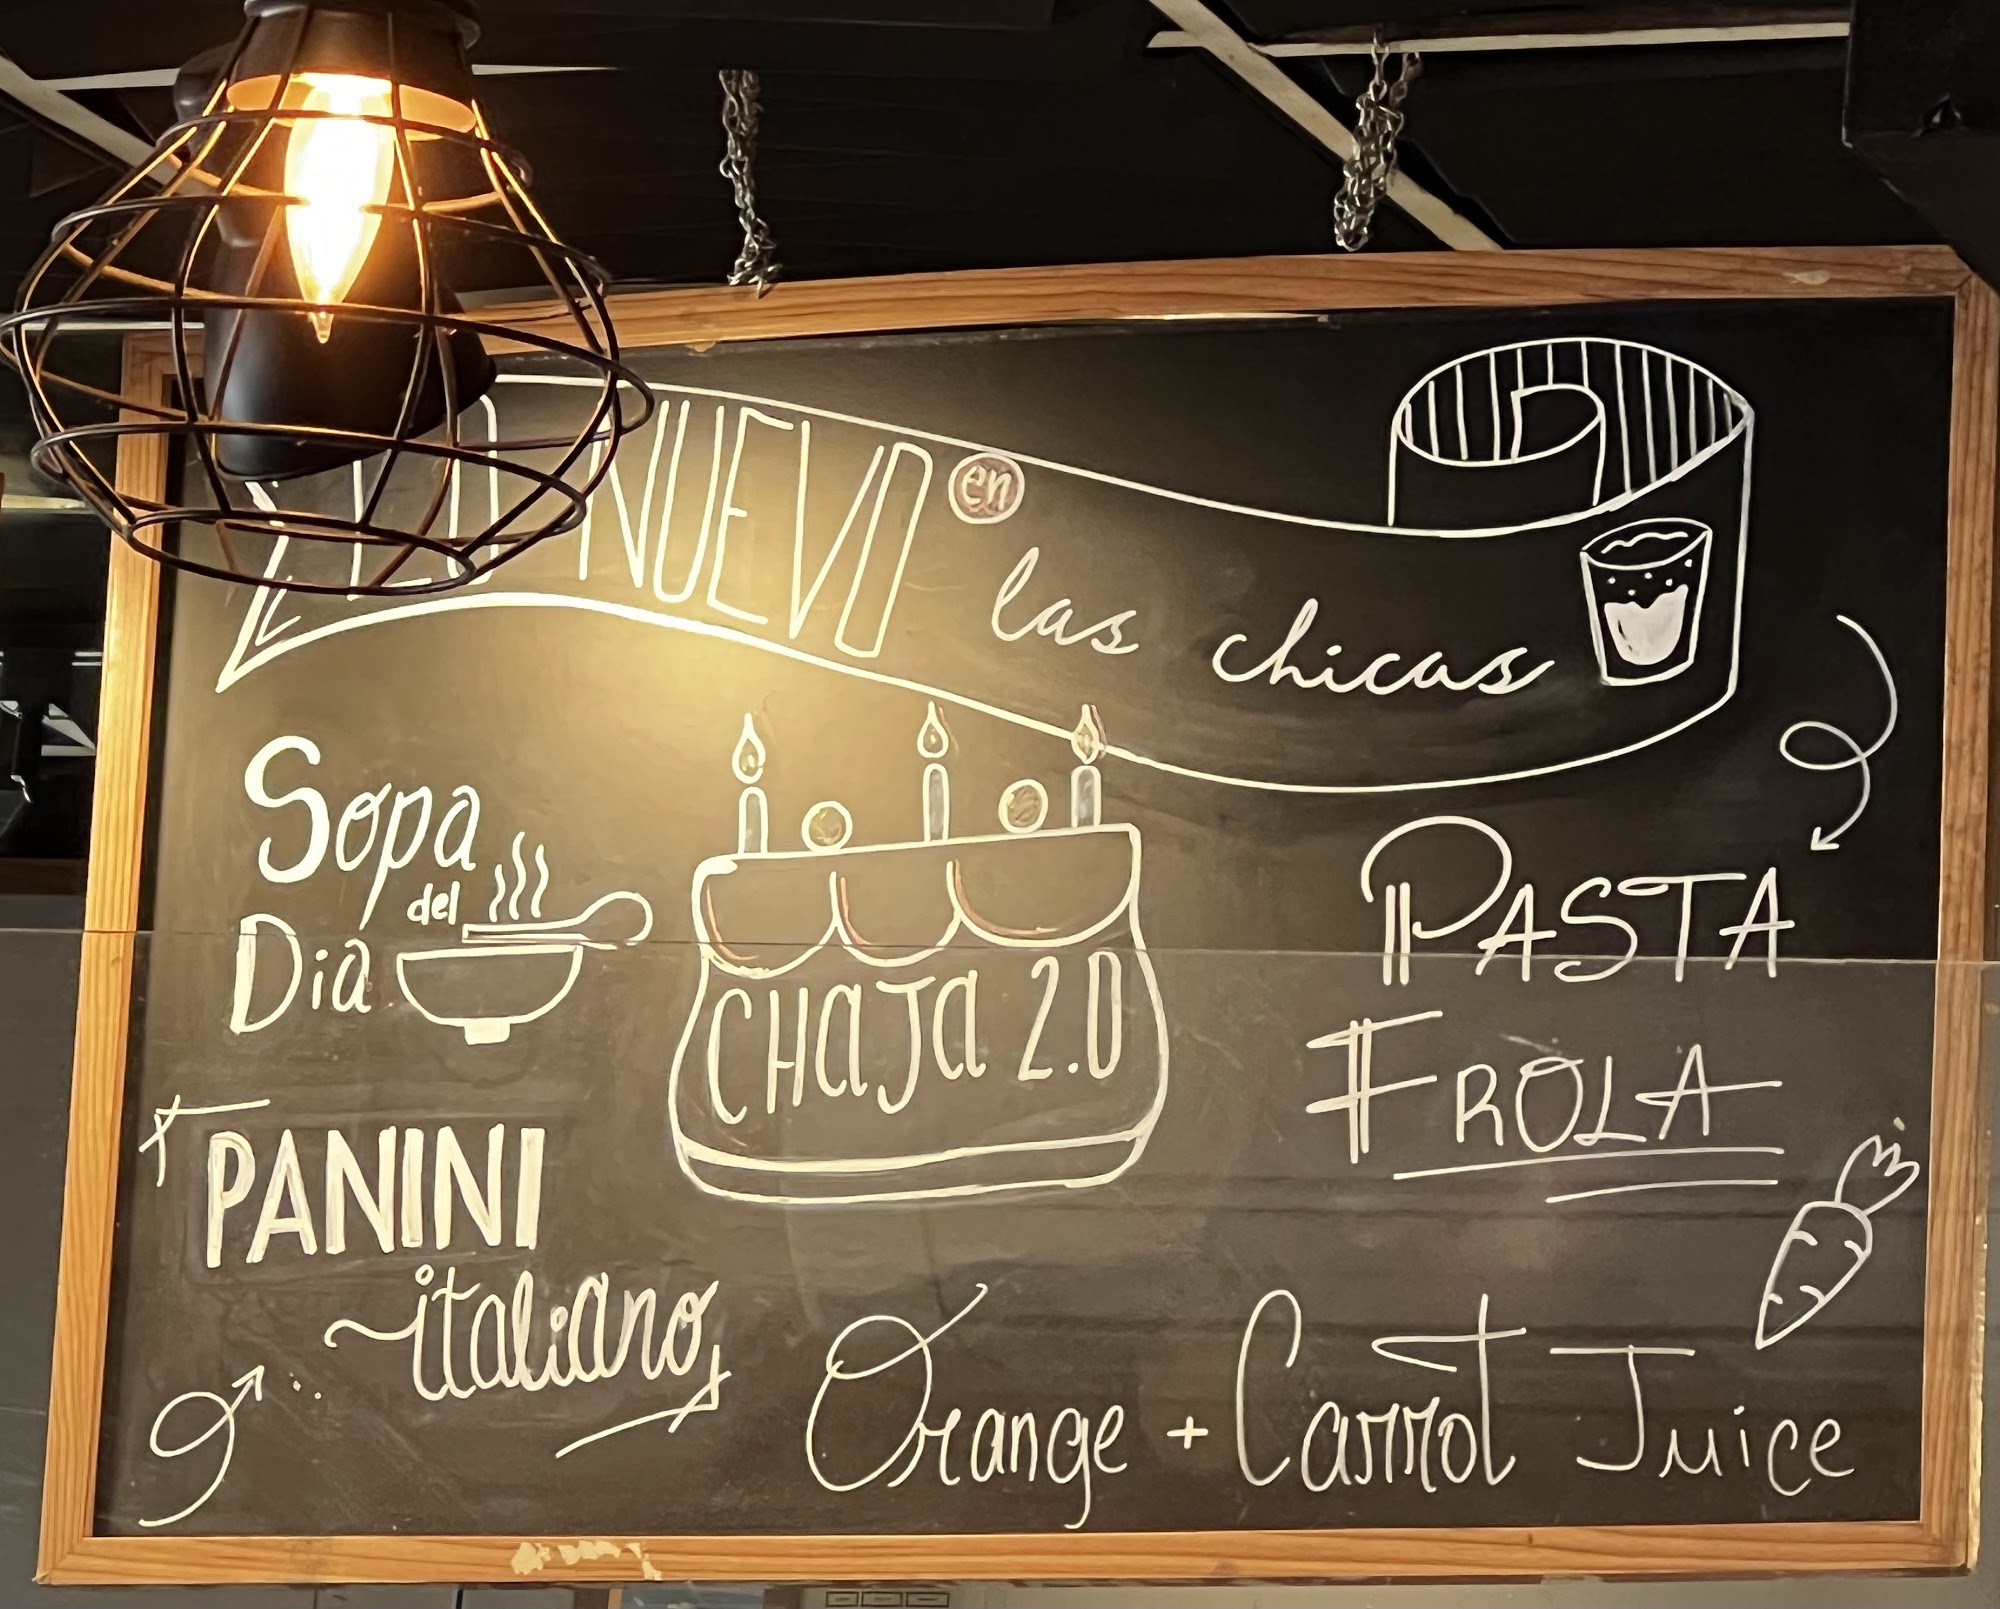 LO NUEVO en las chicas
Sopa
del
Dia
CHAJA 2.0
PASTA
FROLA
PANINI
italiano
Orange + Carrot Juice